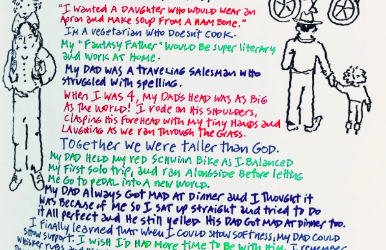 "I wanted a daughter who would wear an
apron and make soup from a ham bone."
I'm a vegetarian who doesn't cook.
My "fantasy father" would be super literary
and work at home.
My dad was a traveling salesman who
struggled with spelling.
When I was 4, my dad's head was as big
as the world! I rode on his shoulders,
clasping his forehead with my tiny hands and
laughing as we ran through the grass.
Together we were taller than God.
My dad held my red Schwinn bike as I balanced
my first solo trip, and ran alongside before letting
me go to pedal into a new world.
My dad always got mad at dinner and I thought it
was because of me so I sat up straight and tried to do
it all perfect and he still yelled. His dad got mad at dinner too.
I finally learned that when I could show softness, my dad could
show support. I wish I'd had more time to be with him. I remember
whisper rubs and